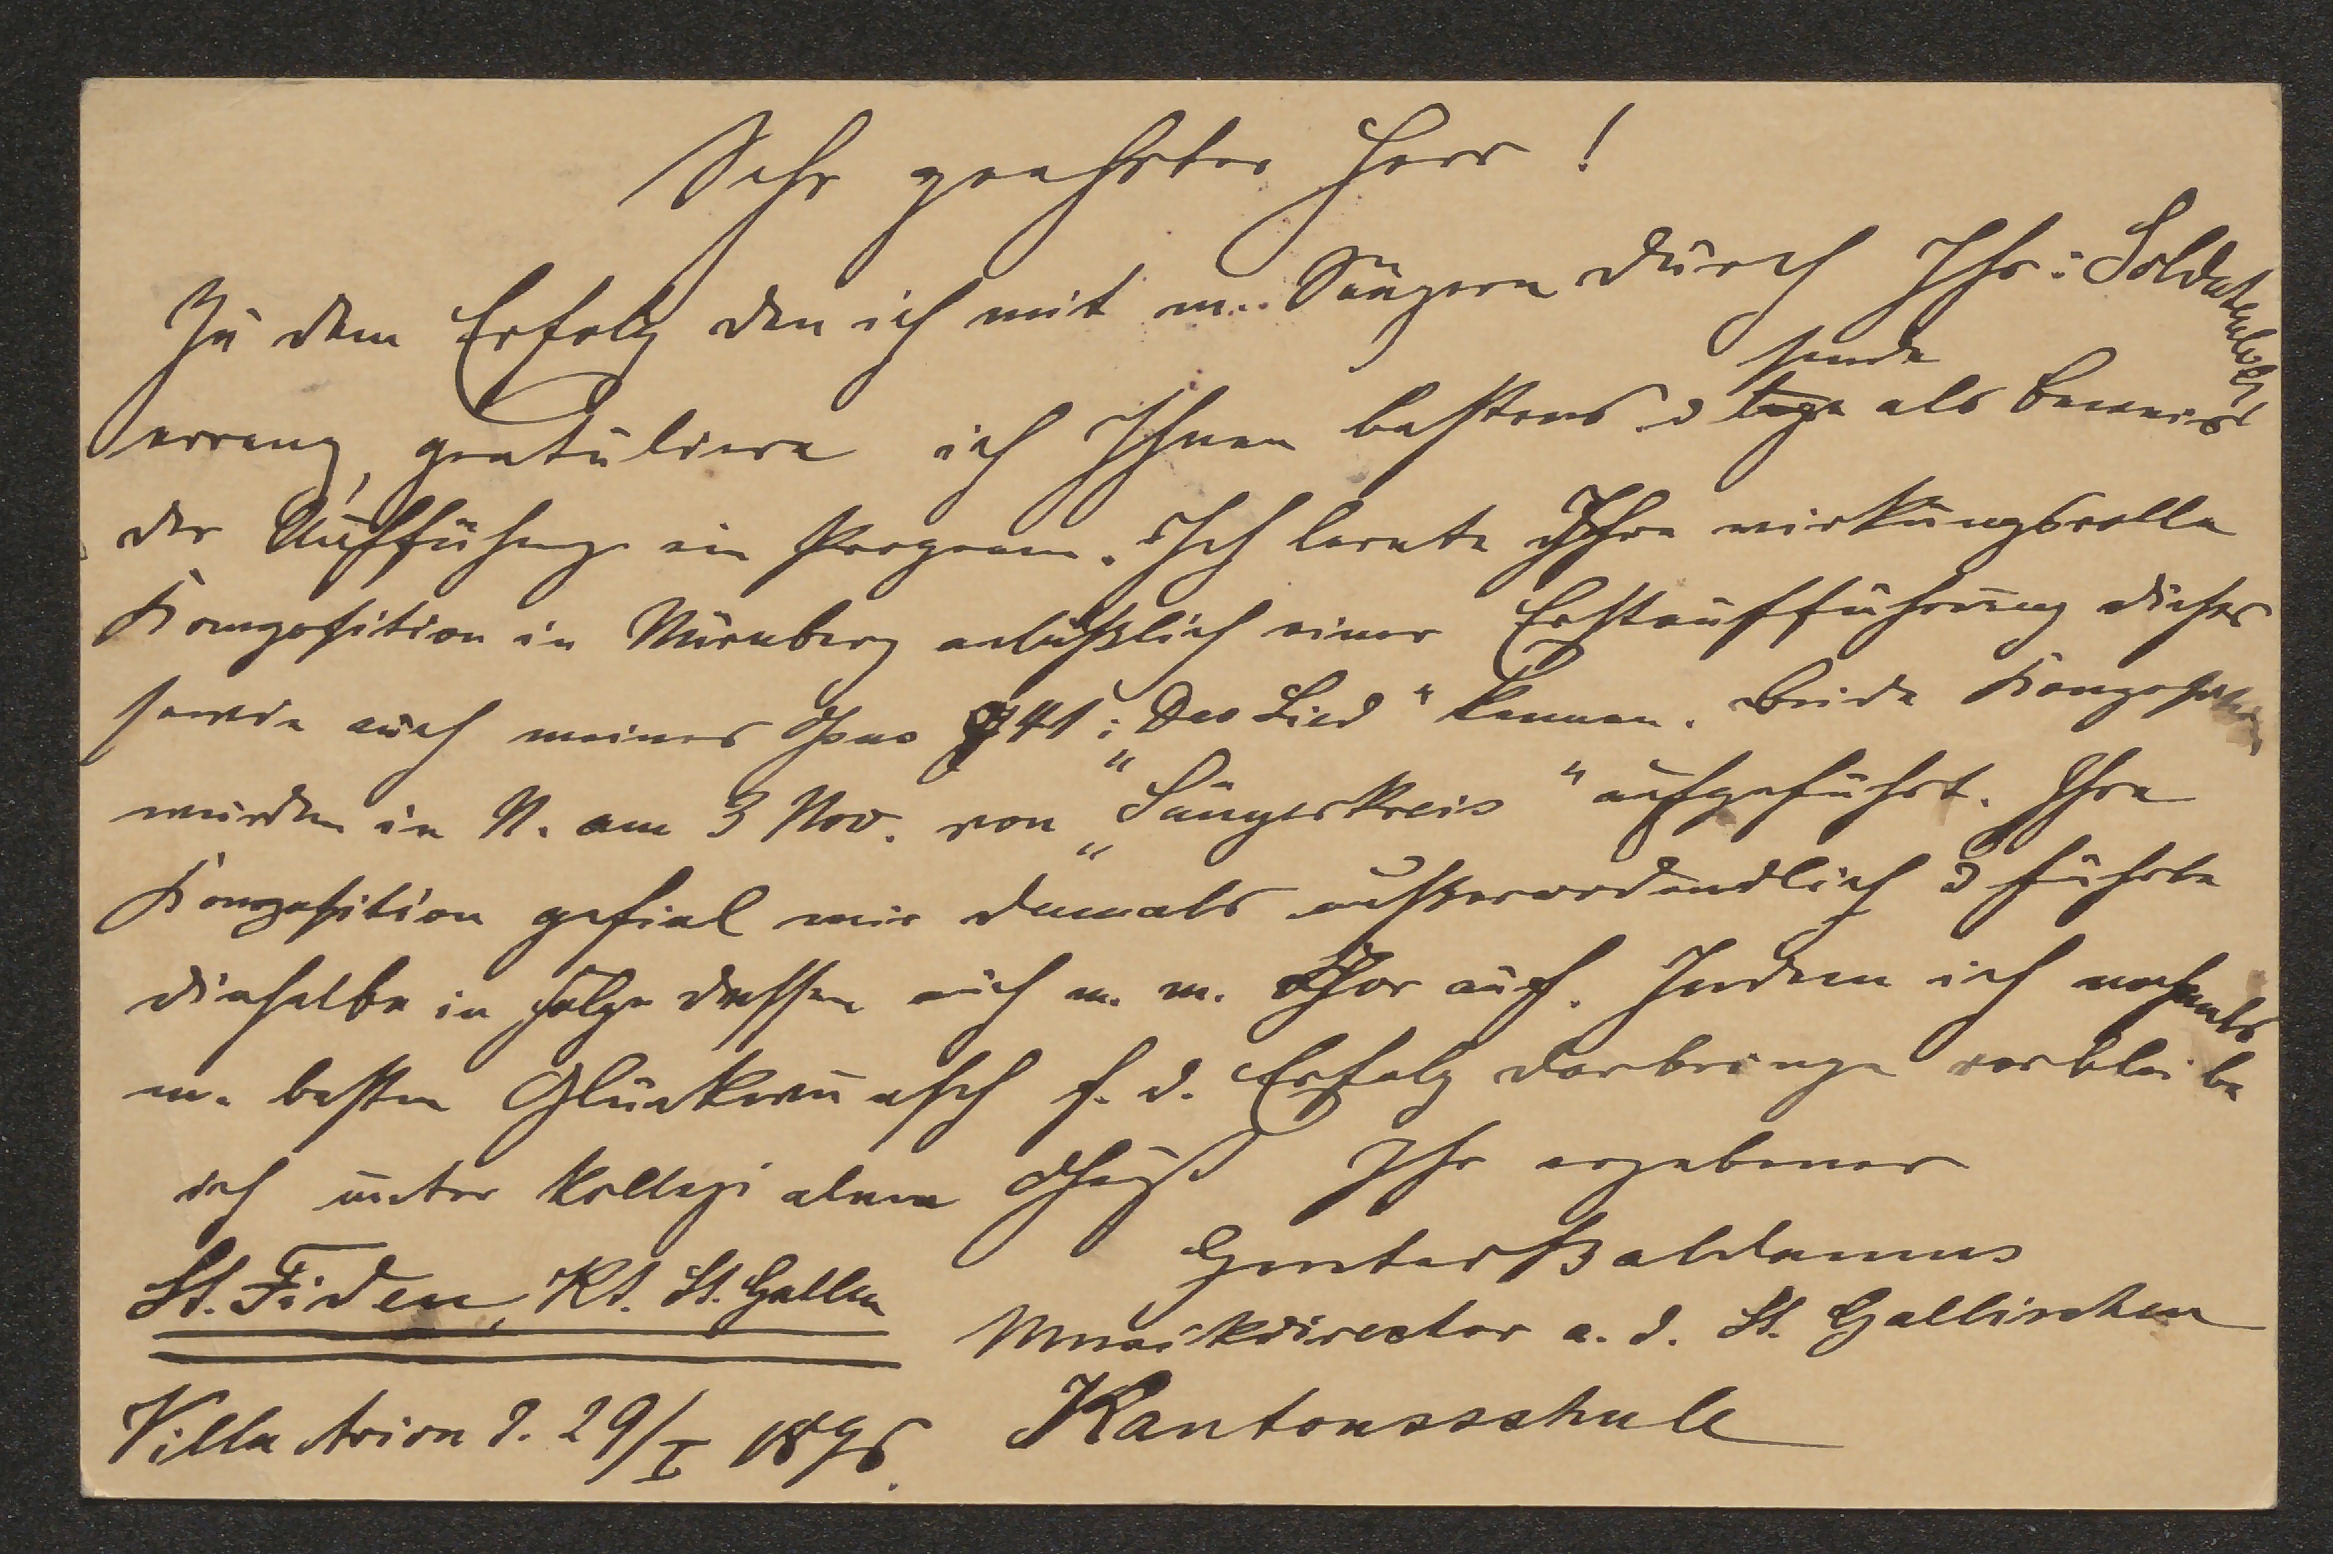 Sehr geehrter Herr!
Zu dem Erfolg den ich mit m. Sängern durch Ihr: Soldatenlos
errang, gratuliere ich Ihnen bestens & lege sende als Beweis
der Aufführung ein Program. Ich lernte Ihre wirkungsvolle
Komposition in Nürnberg anläßlich einer Erstaufführung dieser
sowie auch meines Opus 41: „Das Lied“ kennen. Beide Kompositionen
wurden in N. am 3 Nov. von „Sängerkreis“ aufgeführt. Ihre
Komposition gefiel mir damals außerordendlich & führte
dieselbe in Folge dessen auch m. m. Chor auf. Indem ich nochmals
m. besten Glückwunsch f. d. Erfolg darbringe verbleibe
ich unter kollegialem Gruß Ihr ergebener
Gustav Baldamus
St. Fiden, Kt. St. Gallen
Musikdirector a. d. St. Gallischen
Kantonsschule
Villa Arion d. 29/I 1896.